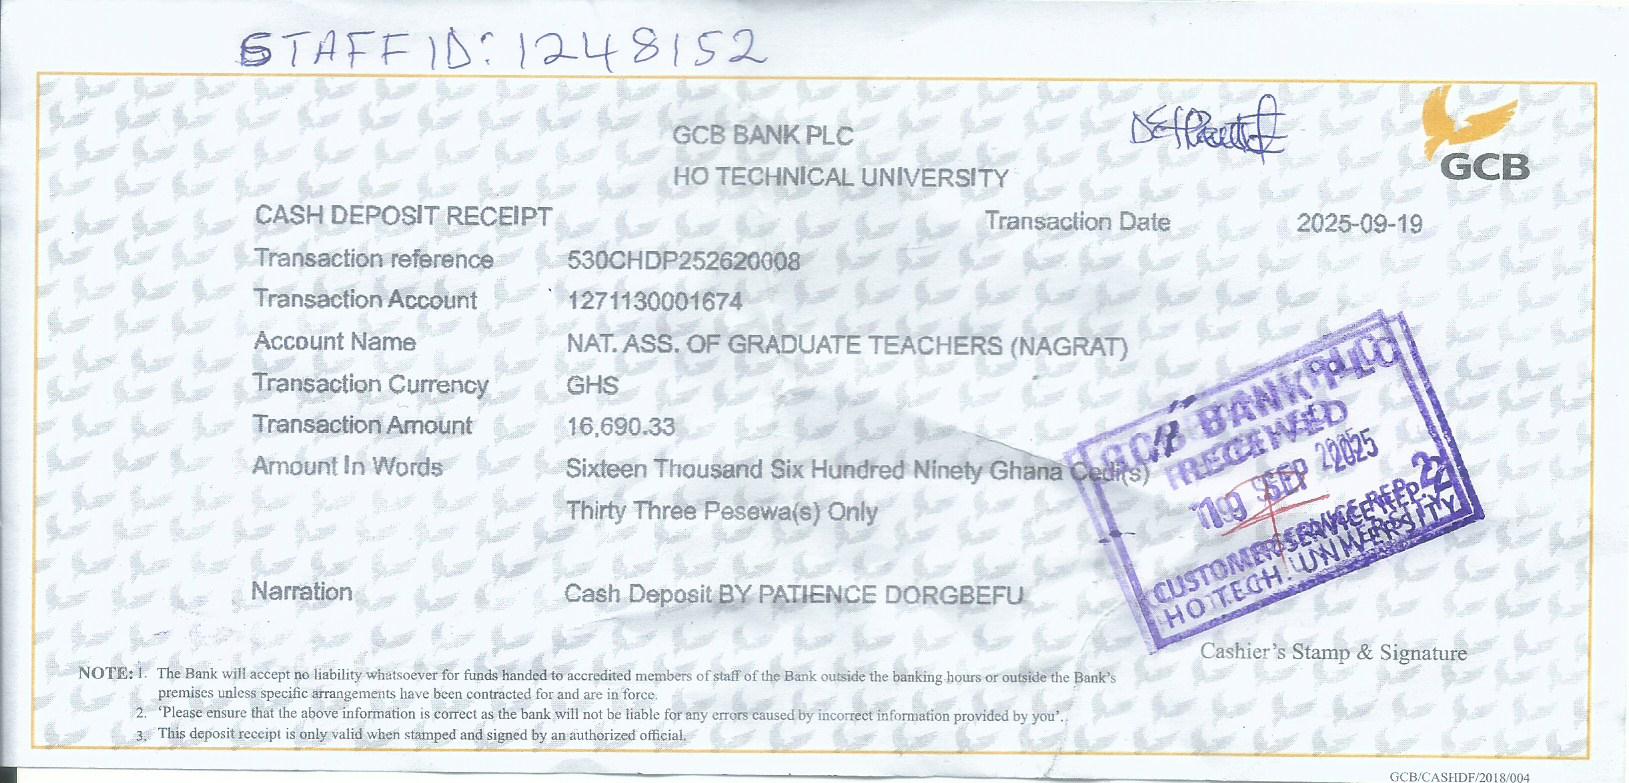 STAFF ID: 1248152
GCB BANK PLC
HO TECHNICAL UNIVERSITY
GCB
CASH DEPOSIT RECEIPT
Transaction Date 2025-09-19
Transaction reference 530CHDP252620008
Transaction Account 1271130001674
Account Name NAT. ASS. OF GRADUATE TEACHERS (NAGRAT)
Transaction Currency GHS
Transaction Amount 16,690.33
Amount In Words Sixteen Thousand Six Hundred Ninety Ghana Cedi(s)
Thirty Three Pesewa(s) Only
Narration Cash Deposit BY PATIENCE DORGBEFU
GCB BANK
RECEIVED
19 SEP 2025
CUSTOMER SERVICE REP. 22
HO TECH. UNIVERSITY
Cashier's Stamp & Signature
NOTE: 1. The Bank will accept no liability whatsoever for funds handed to accredited members of staff of the Bank outside the banking hours or outside the Bank's
premises unless specific arrangements have been contracted for and are in force.
2. 'Please ensure that the above information is correct as the bank will not be liable for any errors caused by incorrect information provided by you'.
3. This deposit receipt is only valid when stamped and signed by an authorized official.
GCB/CASHDF/2018/004